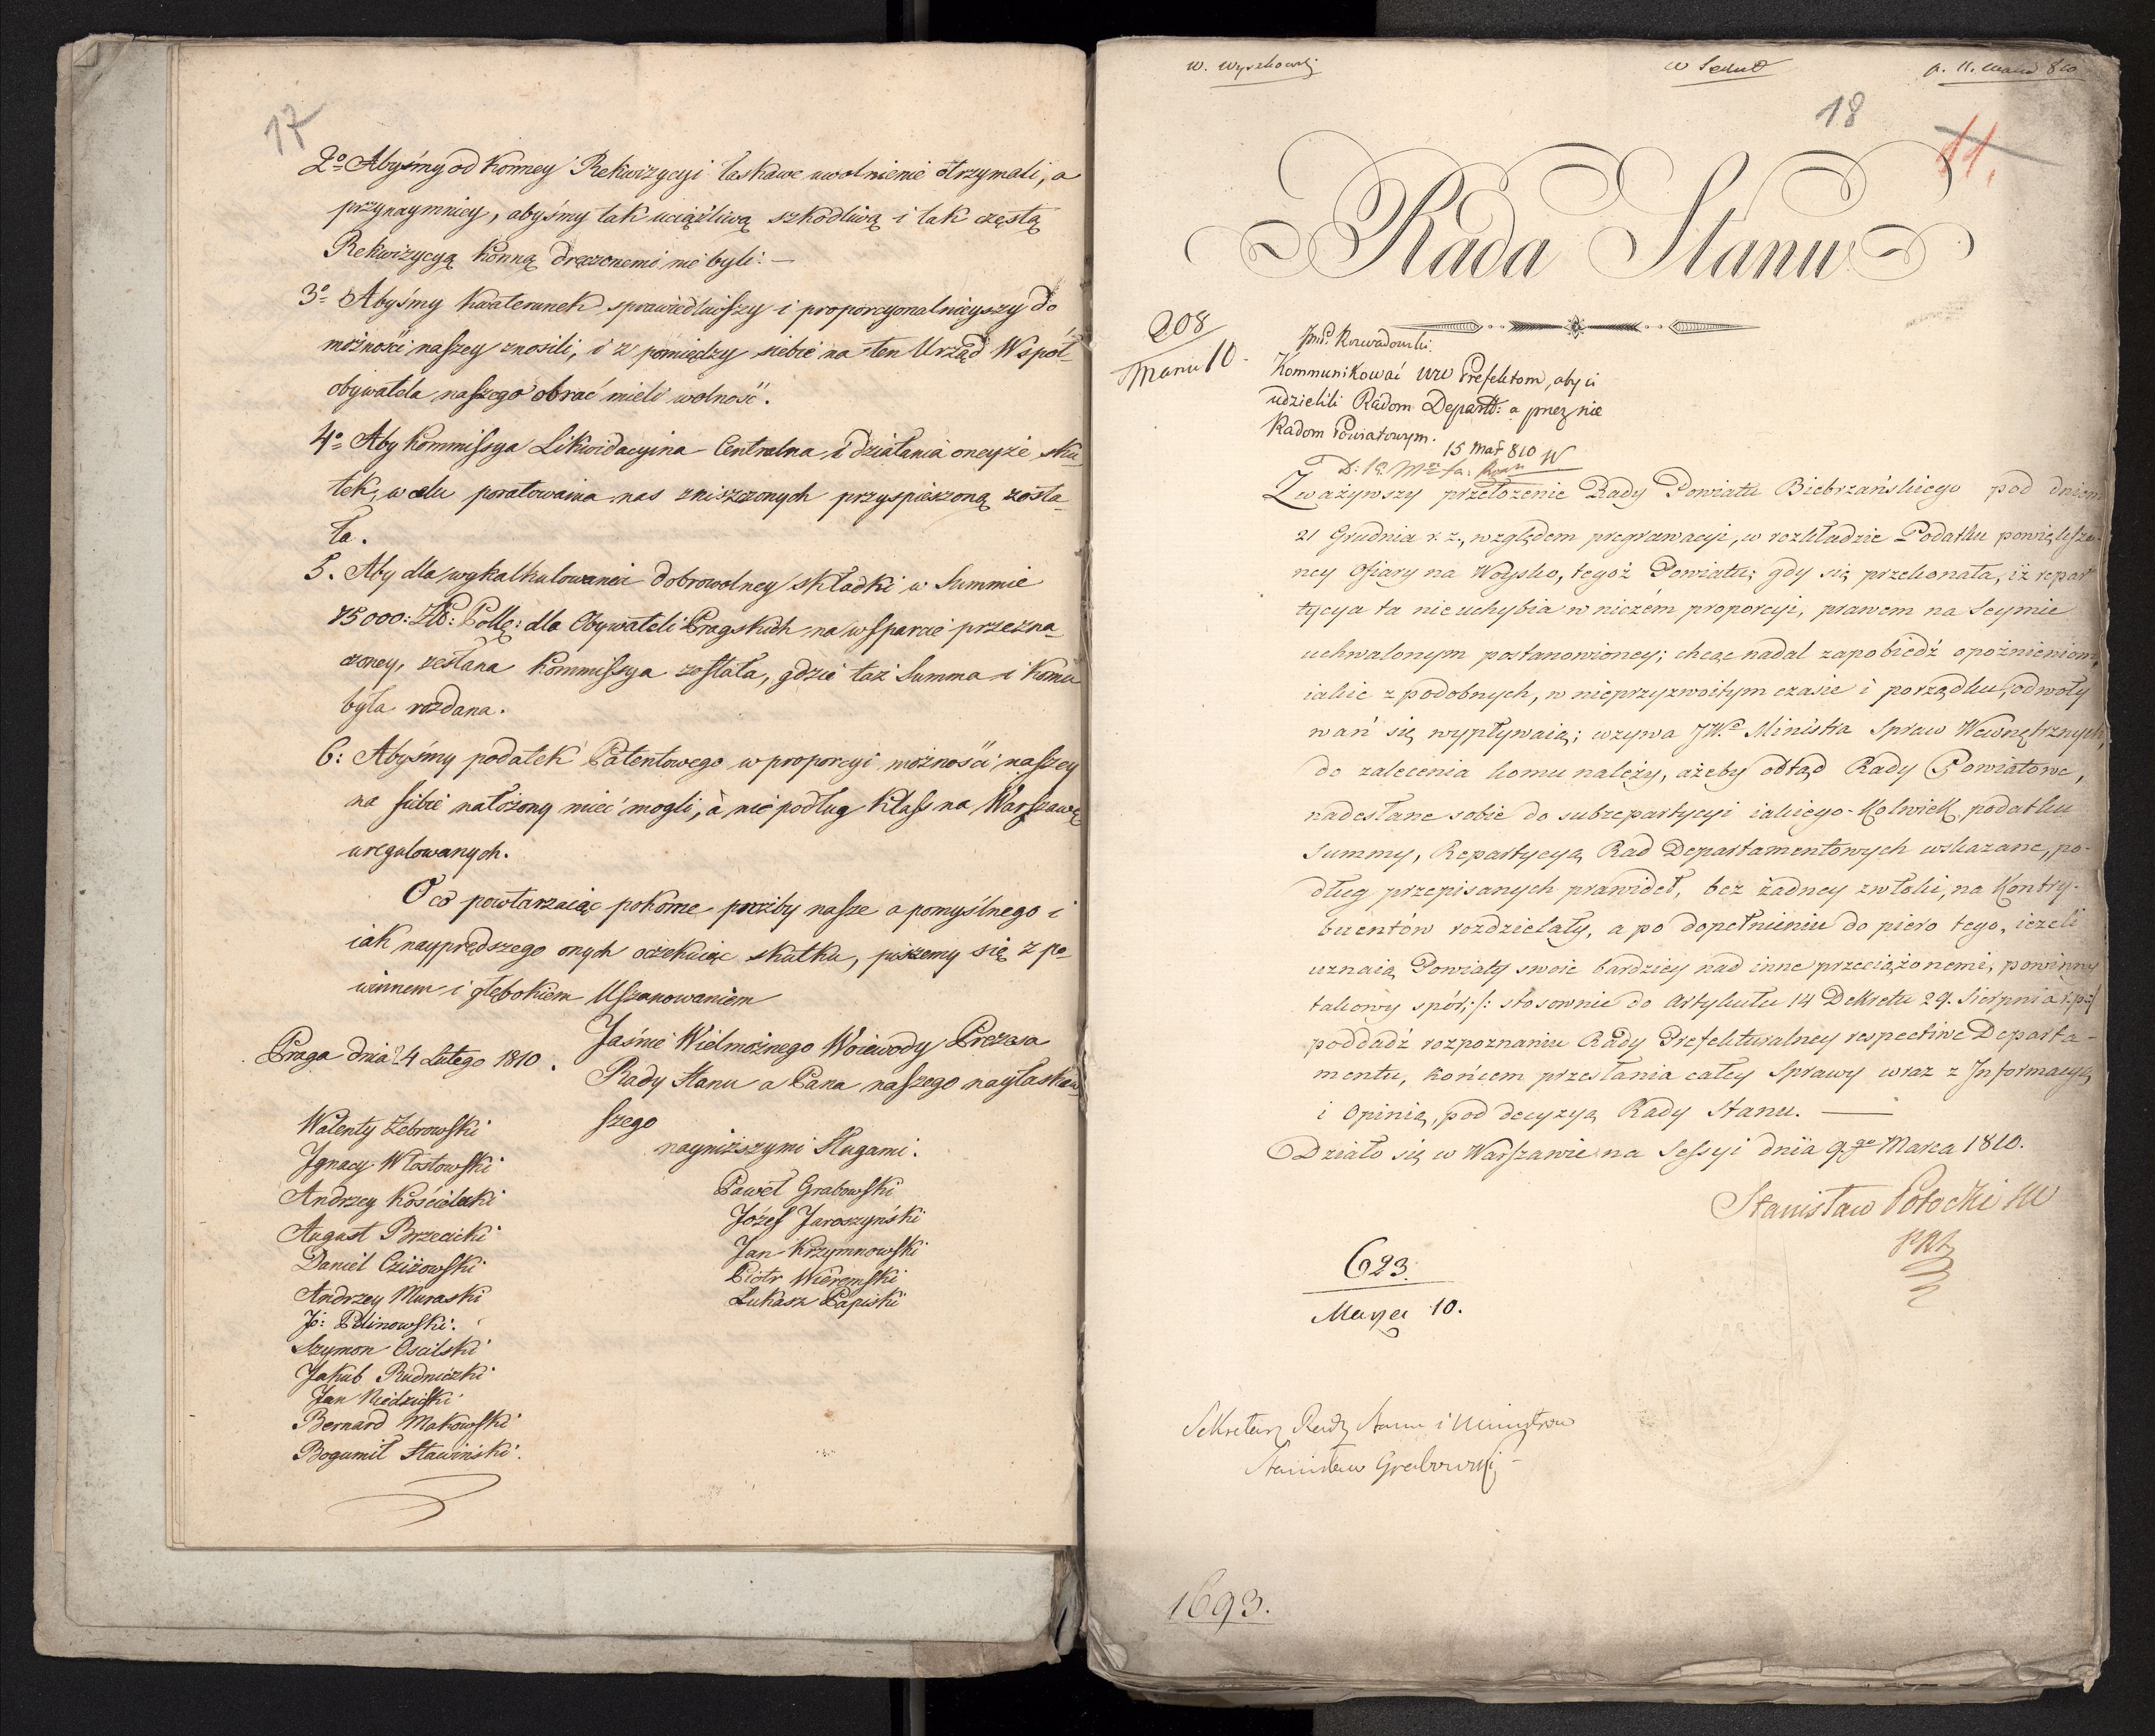 17
2º Abyśmy od Konney Rekwizycyi łaskawe uwolnienie otrzymali, a
przynaymniey, abyśmy tak uciążliwą szkodliwą i tak częstą
Rekwizycyą Konną dręczonemi nie byli. —
3º Abyśmy Kwaterunek sprawiedliwszy i proporcyonalnieyszy do
możności naszey znosili, i z pomiędzy siebie na ten Urząd Wspól-
obywatela naszego obrać mieli wolność.
4º Aby Kommissya Likwidacyina Centralna i działania oneyże sku-
tek, w celu poratowania nas zniszczonych przyspieszoną zosta-
ła.
5. Aby dla wykalkulowania dobrowolney składki w Summie
75000: Złł: Polls: dla Obywateli Pragskich na wsparcie przezna-
czoney, zesłana Kommissya została, gdzie taż Summa i Komu
była rozdana.
6: Abyśmy podatek Patentowego w proporcyi możności naszey
na siebie nałożony mieć mogli, a nie podług Klass na Warszawę
uregulowanych.
O co powtarzaiąc pokorne prozby nasze a pomyślnego i
iak nayprędszego onych oczekuiąc skutku, piszemy się z po-
winnem i głębokiem Uszanowaniem
Jaśnie Wielmożnego Woiewody Prezesa
Praga dnia 24 Lutego 1810.
Rady Stanu a Pana naszego nayłaskaw-
szego
nayniższymi Sługami.
Walenty Żebrowski
Jgnacy Włostowski
Andrzey Kościelecki
August Brzecicki
Daniel Cziżowski
Andrzey Muraski
Jó: Polinowski.
Szymon Oscilski
Jakub Rudniczki
Jan Niedzielski
Bernard Makowski
Bogumił Stawiński.
Paweł Grabowski
Józef Jaroszyński
Jan Krzymnowski
Piotr Wieremski
Łukasz Papiski
W. Wyszkowski
w Sekret
p. 11. Marca 810
18
11.
Rada Stanu
208
Marca 10.
Kommunikować WW Prefektom, aby ci
udzielili Radom Departt: a przez nie
Radom Powiatowym.
15 Mar 810
Zważywszy przełożenie Rady Powiatu Biebrzańskiego pod dniem
21 Grudnia r. z., względem pregrawacyi, w rozkładzie Podatku powiększo-
ney Ofiary na Woysko, tegoż Powiatu; gdy się przekonała, iż repar-
tycya ta nie uchybia w niczém proporcyi, prawem na Seymie
uchwalonym postanowioney; chcąc nadal zapobiedź opóźnieniom,
iakie z podobnych, w nieprzyzwoitym czasie i porządku, odwoły-
wań się wypływaią; wzywa JWo Ministra Spraw Wewnętrznych,
do zalecenia komu należy, ażeby odtąd Rady Powiatowe,
nadesłane sobie do subrepartycyi iakiego-Kolwiek, podatku
summy, Repartycyą Rad Departamentowych wskazane, po-
dług przepisanych prawideł, bez żadney zwłoki, na Kontry-
buentów rozdzielały, a po dopełnieniu do piero tego, ieżeli
uznaią Powiaty swoie bardziey nad inne przeciążonemi, powinny
takowy spór, /: stosownie do Artykułu 14 Dekretu 29. Sierpnia
poddadź rozpoznaniu Rady Prefekturalney respective Departa-
mentu, końcem przesłania całey Sprawy wraz z Informacyą
i Opinią, pod decyzyą Rady Stanu. —
Działo się w Warszawie na Sessyi dnia 9go Marca 1810.
Stanisław Potocki
623.
Marca 10.
Sekretarz Rady Stanu i Ministrów
Stanisław Grabowski
1693.